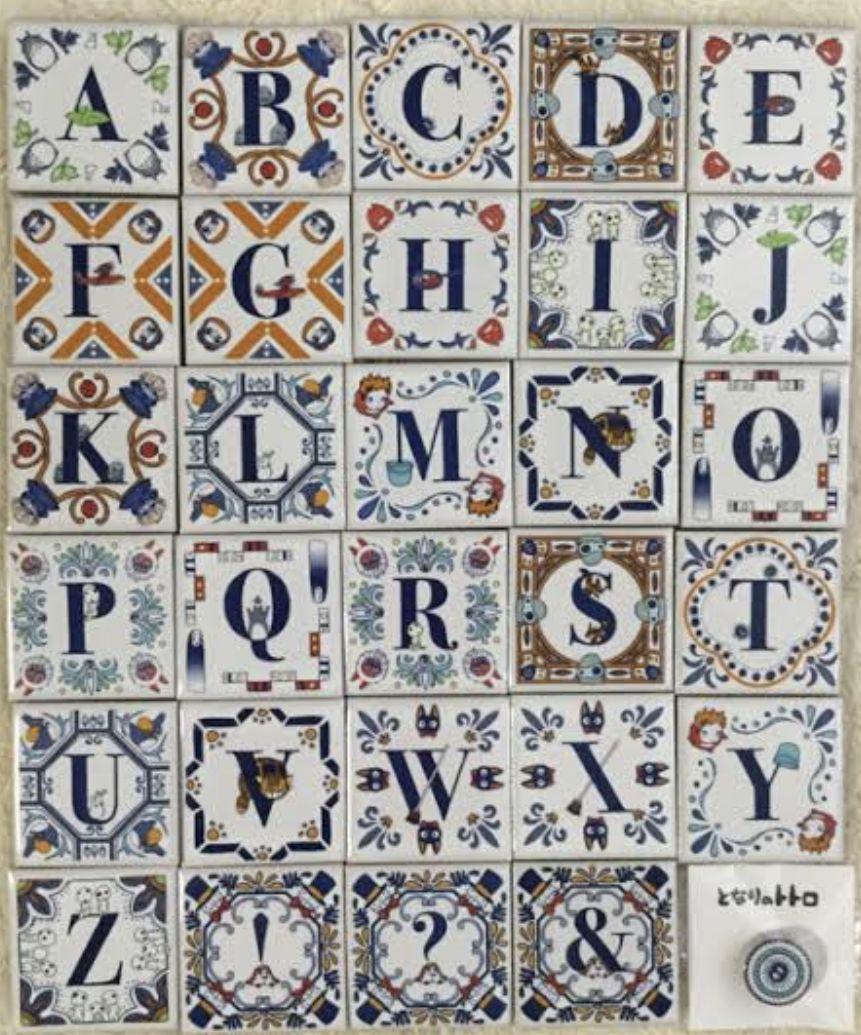 A B C D E
F G H I J
K L M N O
P Q R S T
U V W X Y
Z ! ? & となりのトトロ